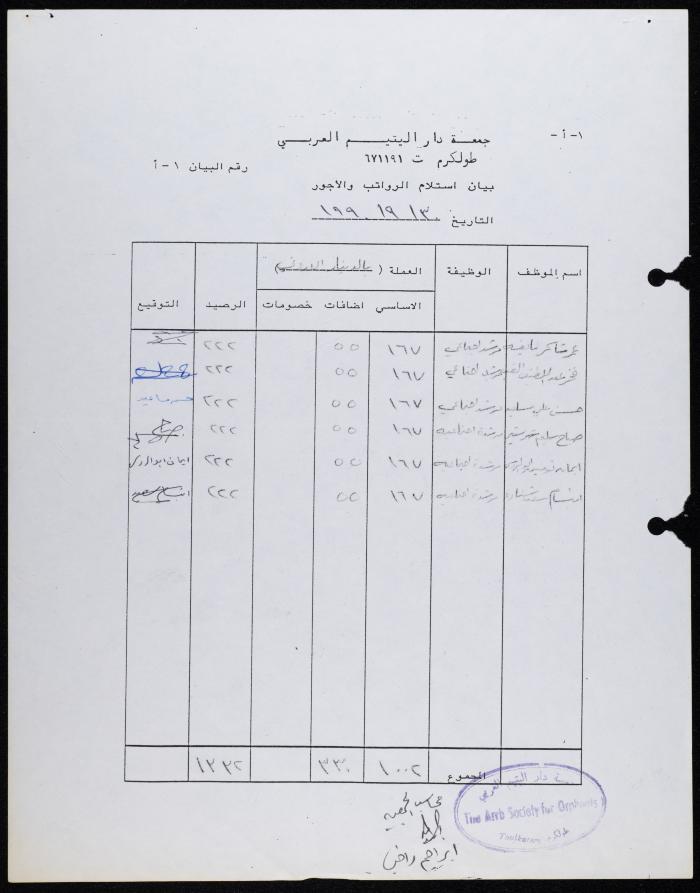 -أ-١
جمعية دار اليتيم العربي
طولكرم ت ٦٧١١٩١
رقم البيان ١-أ
بيان استلام الرواتب والأجور
التاريخ ١٩٩٠/٩/٣٠
اسم الموظف الوظيفة العملة (بالدينار الاردني) الرصيد التوقيع
الاساسي اضافات خصومات
عمر شاكر مرشد اجتماعي ١٦٧ ٥٥ ٢٢٢
مرشد اجتماعي ١٦٧ ٥٥ ٢٢٢
حسن علي مرشد اجتماعي ١٦٧ ٥٥ ٢٢٢
صباح سليم مرشدة اجتماعية ١٦٧ ٥٥ ٢٢٢
ايمان مرشدة اجتماعية ١٦٧ ٥٥ ٢٢٢ ايمان ابو
ابتسام سعيد مرشدة اجتماعية ١٦٧ ٥٥ ٢٢٢
المجموع ١٠٠٢ ٣٣٠ ١٣٣٢
جمعية دار اليتيم العربي
The Arab Society for Orphans
Tulkarm
محاسب الجمعية
ابراهيم راضي